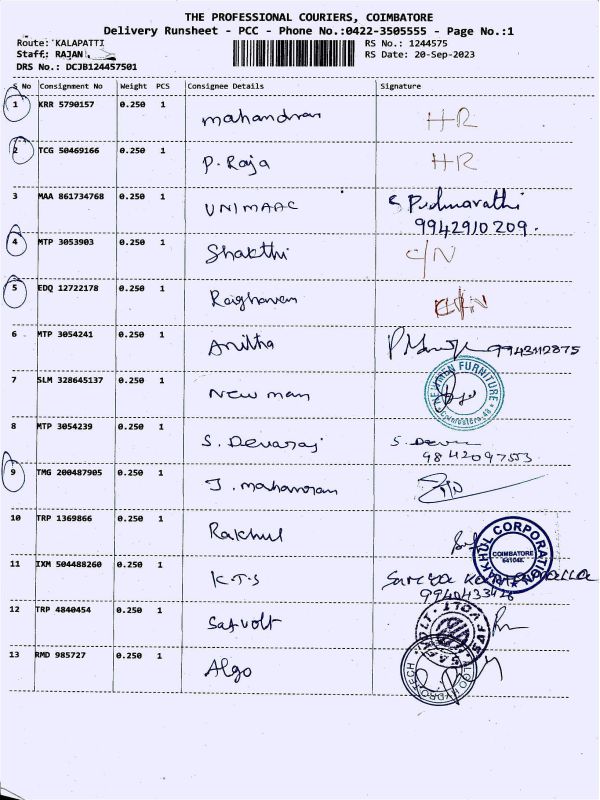 THE PROFESSIONAL COURIERS, COIMBATORE
Delivery Runsheet - PCC - Phone No.:0422-3505555 - Page No.:1
Route: KALAPATTI RS No.: 1244575
Staff: RAJAN RS Date: 20-Sep-2023
DRS No.: DCJB124457501
S No Consignment No Weight PCS Consignee Details Signature
1 KRR 5790157 0.250 1 mahandran HR
2 TCG 50469166 0.250 1 P. Raja HR
3 MAA 861734768 0.250 1 UNIMAAC S Padmavathi
9942910209.
4 MTP 3053903 0.250 1 Shakthi C/N
5 EDQ 12722178 0.250 1 Raighavan
6 MTP 3054241 0.250 1 Anitha 9943112875
7 SLM 328645137 0.250 1 New man NEWMEN FURNITURE
8 MTP 3054239 0.250 1 S. Devaraj S. Deva
9842097553
9 TMG 200487905 0.250 1 J. mahanoran
10 TRP 1369866 0.250 1 Rakhul RAKHUL CORPORATION
COIMBATORE
641048.
11 IXM 504488260 0.250 1 K.T.S
9940433428
12 TRP 4840454 0.250 1 Safvolt SAFVOLT
13 RMD 985727 0.250 1 Algo ALGO HYDROTECH